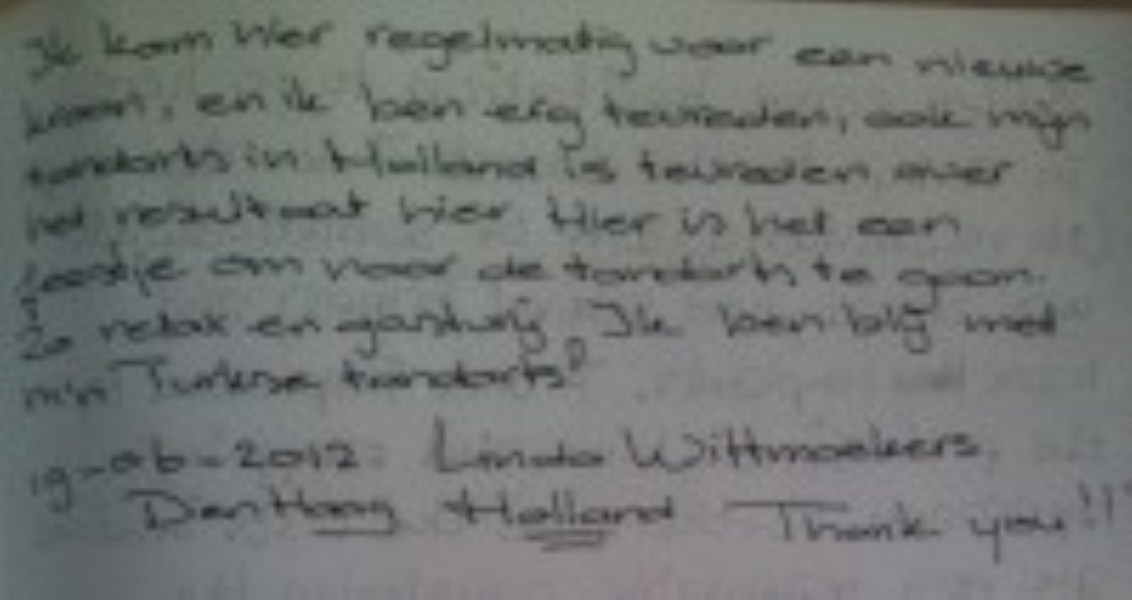 Ik kom hier regelmatig voor een nieuwe
kroon, en ik ben erg tevreden, ook mijn
tandarts in Holland is tevreden over
het resultaat hier. Hier is het een
feestje om naar de tandarts te gaan.
Zo relax en gastvrij. Ik ben blij met
m'n Turkse tandarts!
19-06-2012. Linda Wittmaekers.
Den Haag Holland Thank you!!